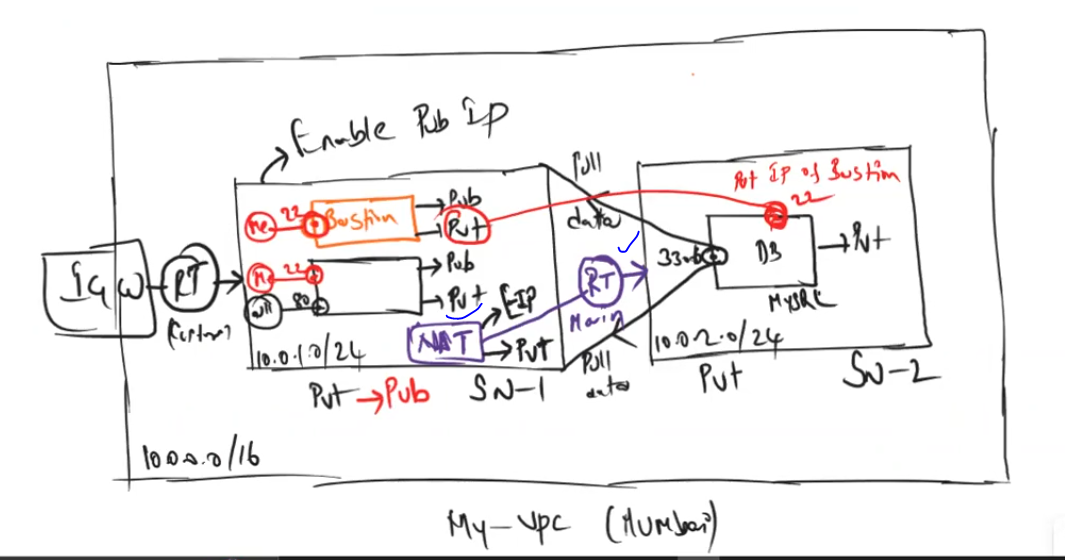 Enable Pub IP
IGW
RT
(Custom)
Me 22
Bastion
Pub
Pvt
Me 22
All 80
Pub
Pvt
NAT
EIP
Pvt
10.0.1.0/24
Pvt → Pub
SN-1
Pull
data
RT
Main
Pull
data
Pvt IP of Bastion
22
3306
DB
Pvt
MySQL
10.0.2.0/24
Pvt
SN-2
10.0.0.0/16
My-VPC (Mumbai)